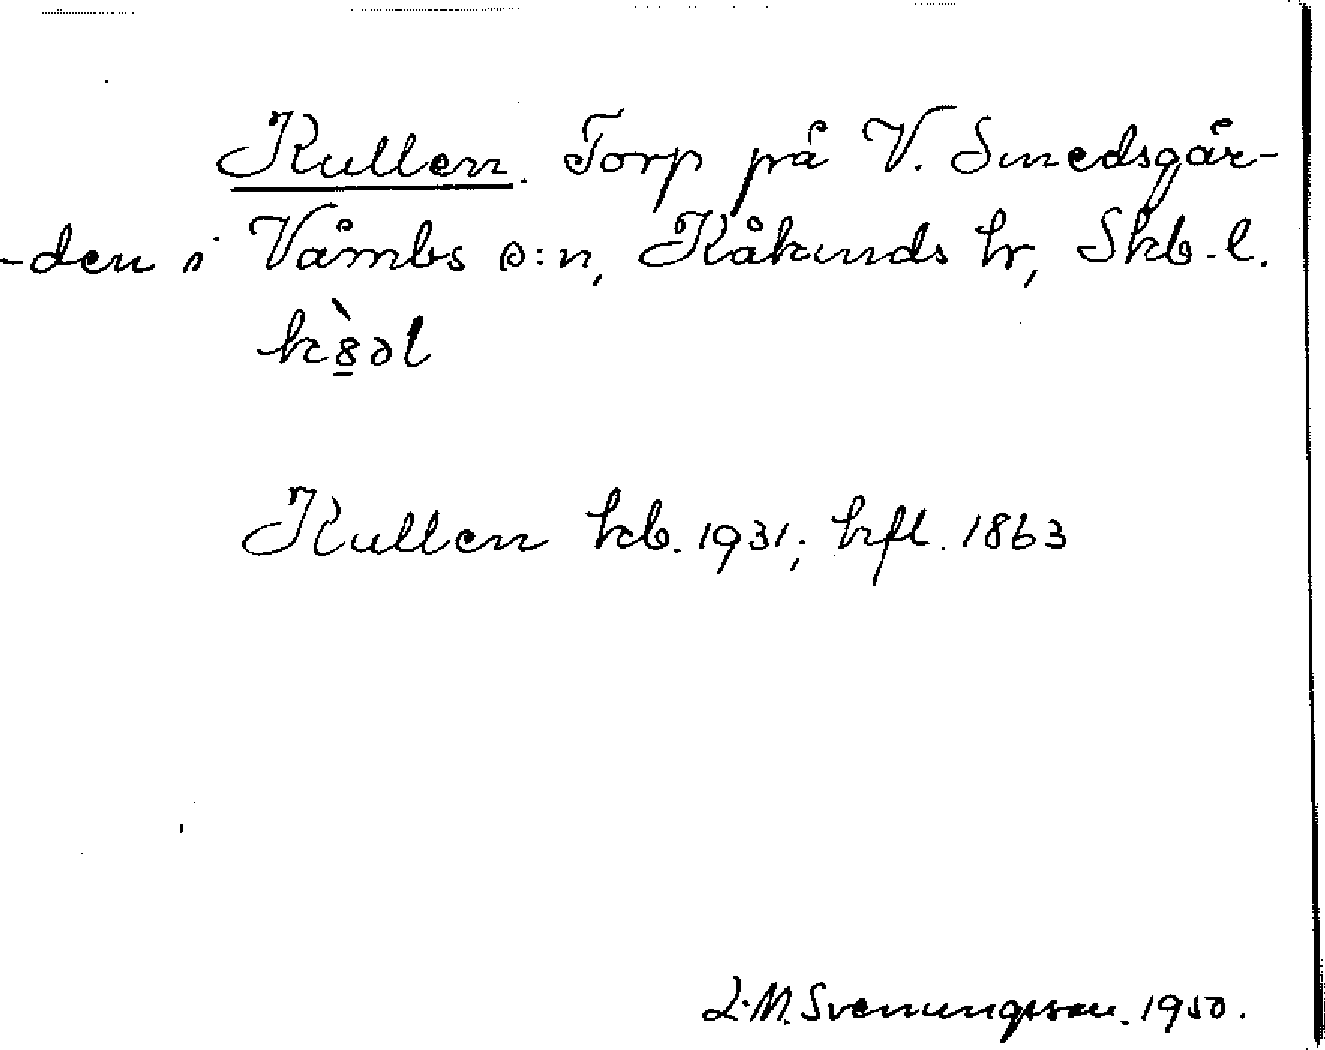 Kullen. Torp på V. Smedsgår-
-den i Våmbs s:n, Kåkinds hr, Skb. l.
Kullen kb. 1931; hfl. 1863
L.M. Svenungsson. 1950.